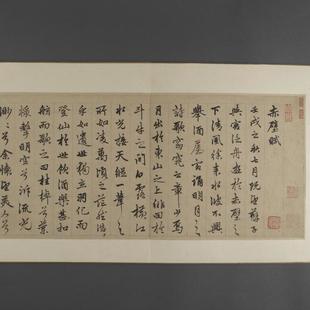 赤壁賦
壬戌之秋七月既望蘇子
與客泛舟遊於赤壁之
下清風徐來水波不興
舉酒屬客誦明月之
詩歌窈窕之章少焉
月出於東山之上徘徊於
斗牛之間白露橫江
水光接天縱一葦之
所如凌萬頃之茫然浩〻
乎如遺世獨立羽化而
登仙於是飲酒樂甚扣
舷而歌之曰桂棹兮蘭
槳擊明空兮泝流光
渺〻兮余懷望美人兮